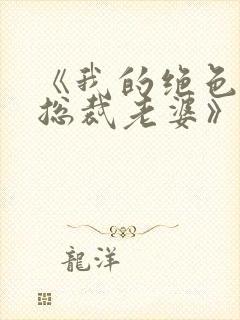 《我的绝色
总裁老婆》
龍洋